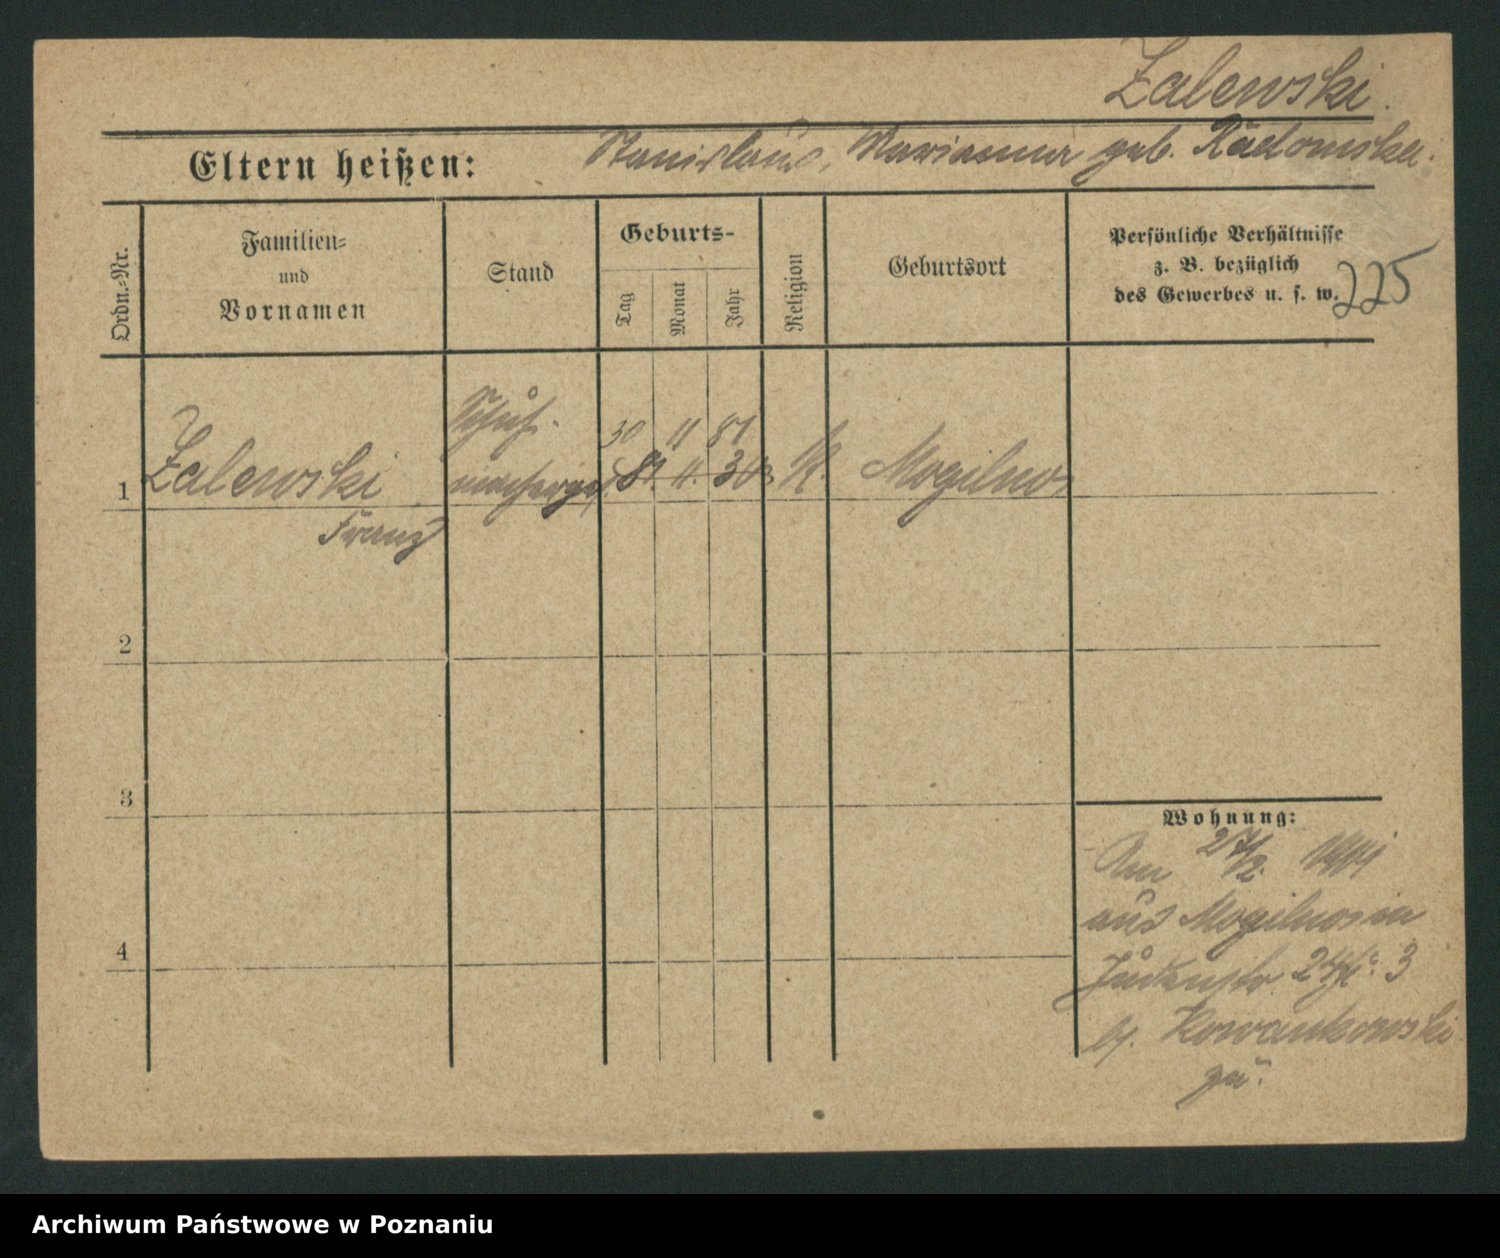 Zalewski.
Eltern heißen: Stanislaus, Marianna geb. Radomska.
Ordn.=Nr.
Familien=
und
Vornamen
Stand
Geburts-
Tag
Monat
Jahr
Religion
Geburtsort
Persönliche Verhältnisse
z. B. bezüglich
des Gewerbes u. s. w.
225
Schuh-
30 11 81
1 Zalewski machergs. 81. 11. 30 K. Mogilno
Franz
2
3
4
Wohnung:
Am 27/2.
aus Mogilno in
Judenstr. 3
b/. Kowankowski
zu.
Archiwum Państwowe w Poznaniu